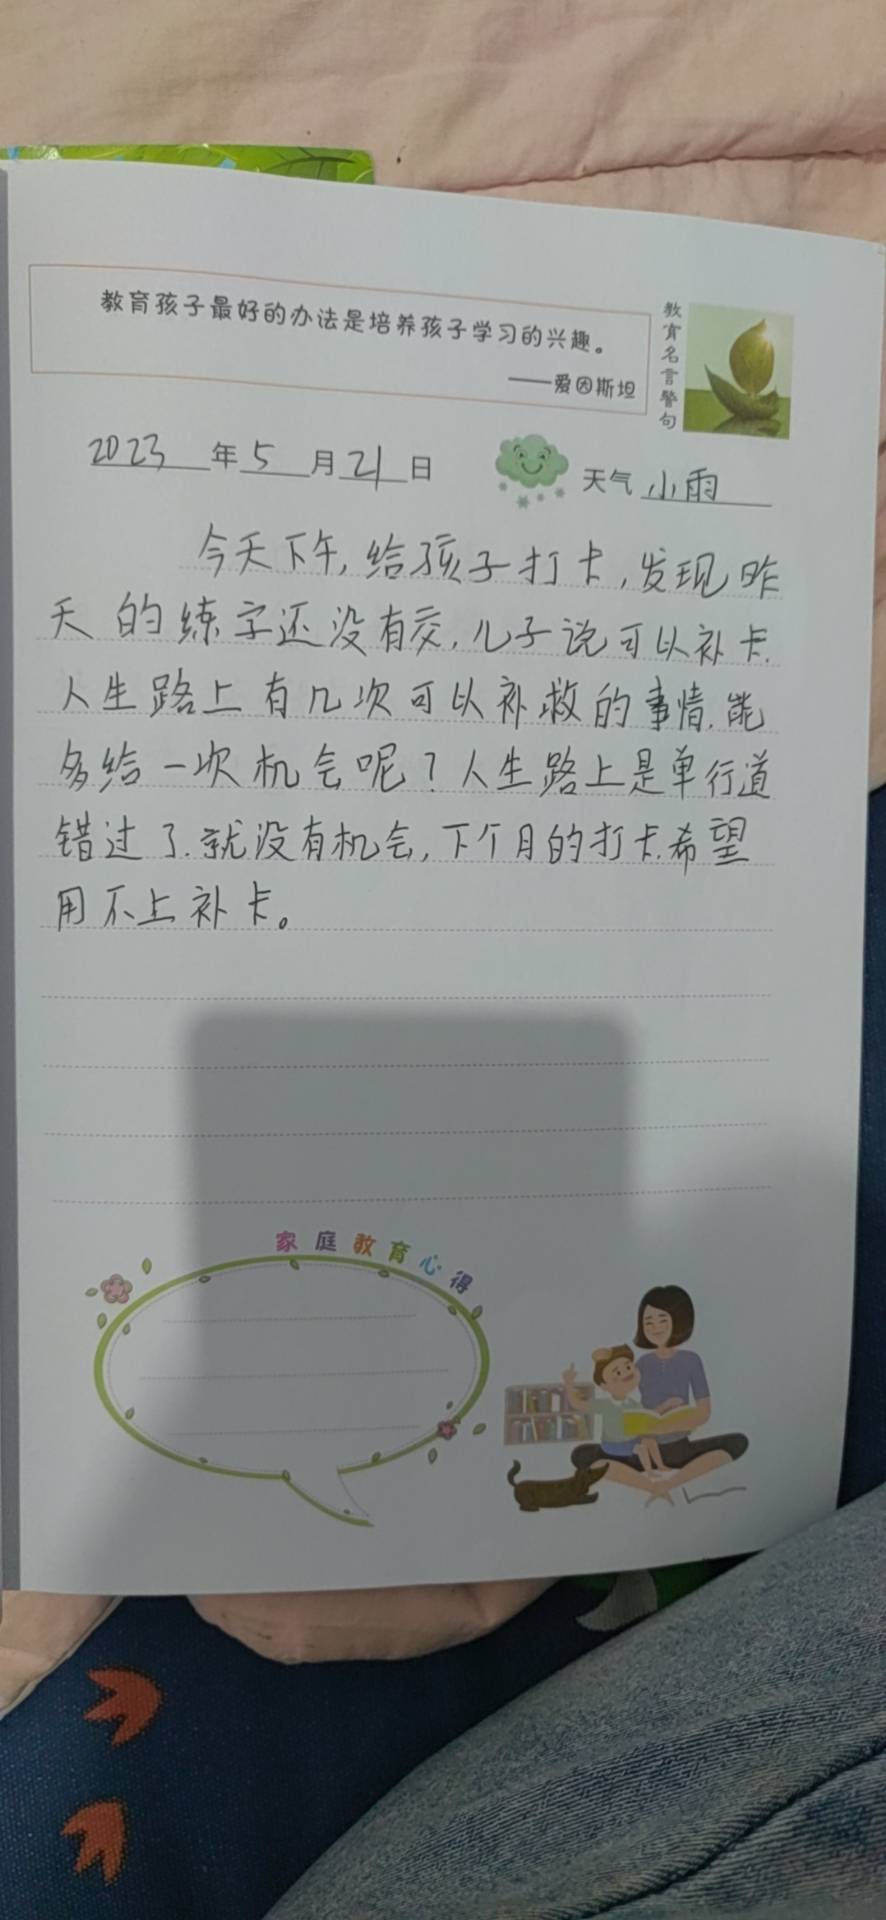 教育孩子最好的办法是培养孩子学习的兴趣。
——爱因斯坦
教育名言警句
2023年5月21日 天气 小雨
今天下午,给孩子打卡,发现昨
天的练字还没有交,儿子说可以补卡.
人生路上有几次可以补救的事情.能
多给一次机会呢?人生路上是单行道
错过了.就没有机会,下个月的打卡.希望
用不上补卡。
家庭教育心得